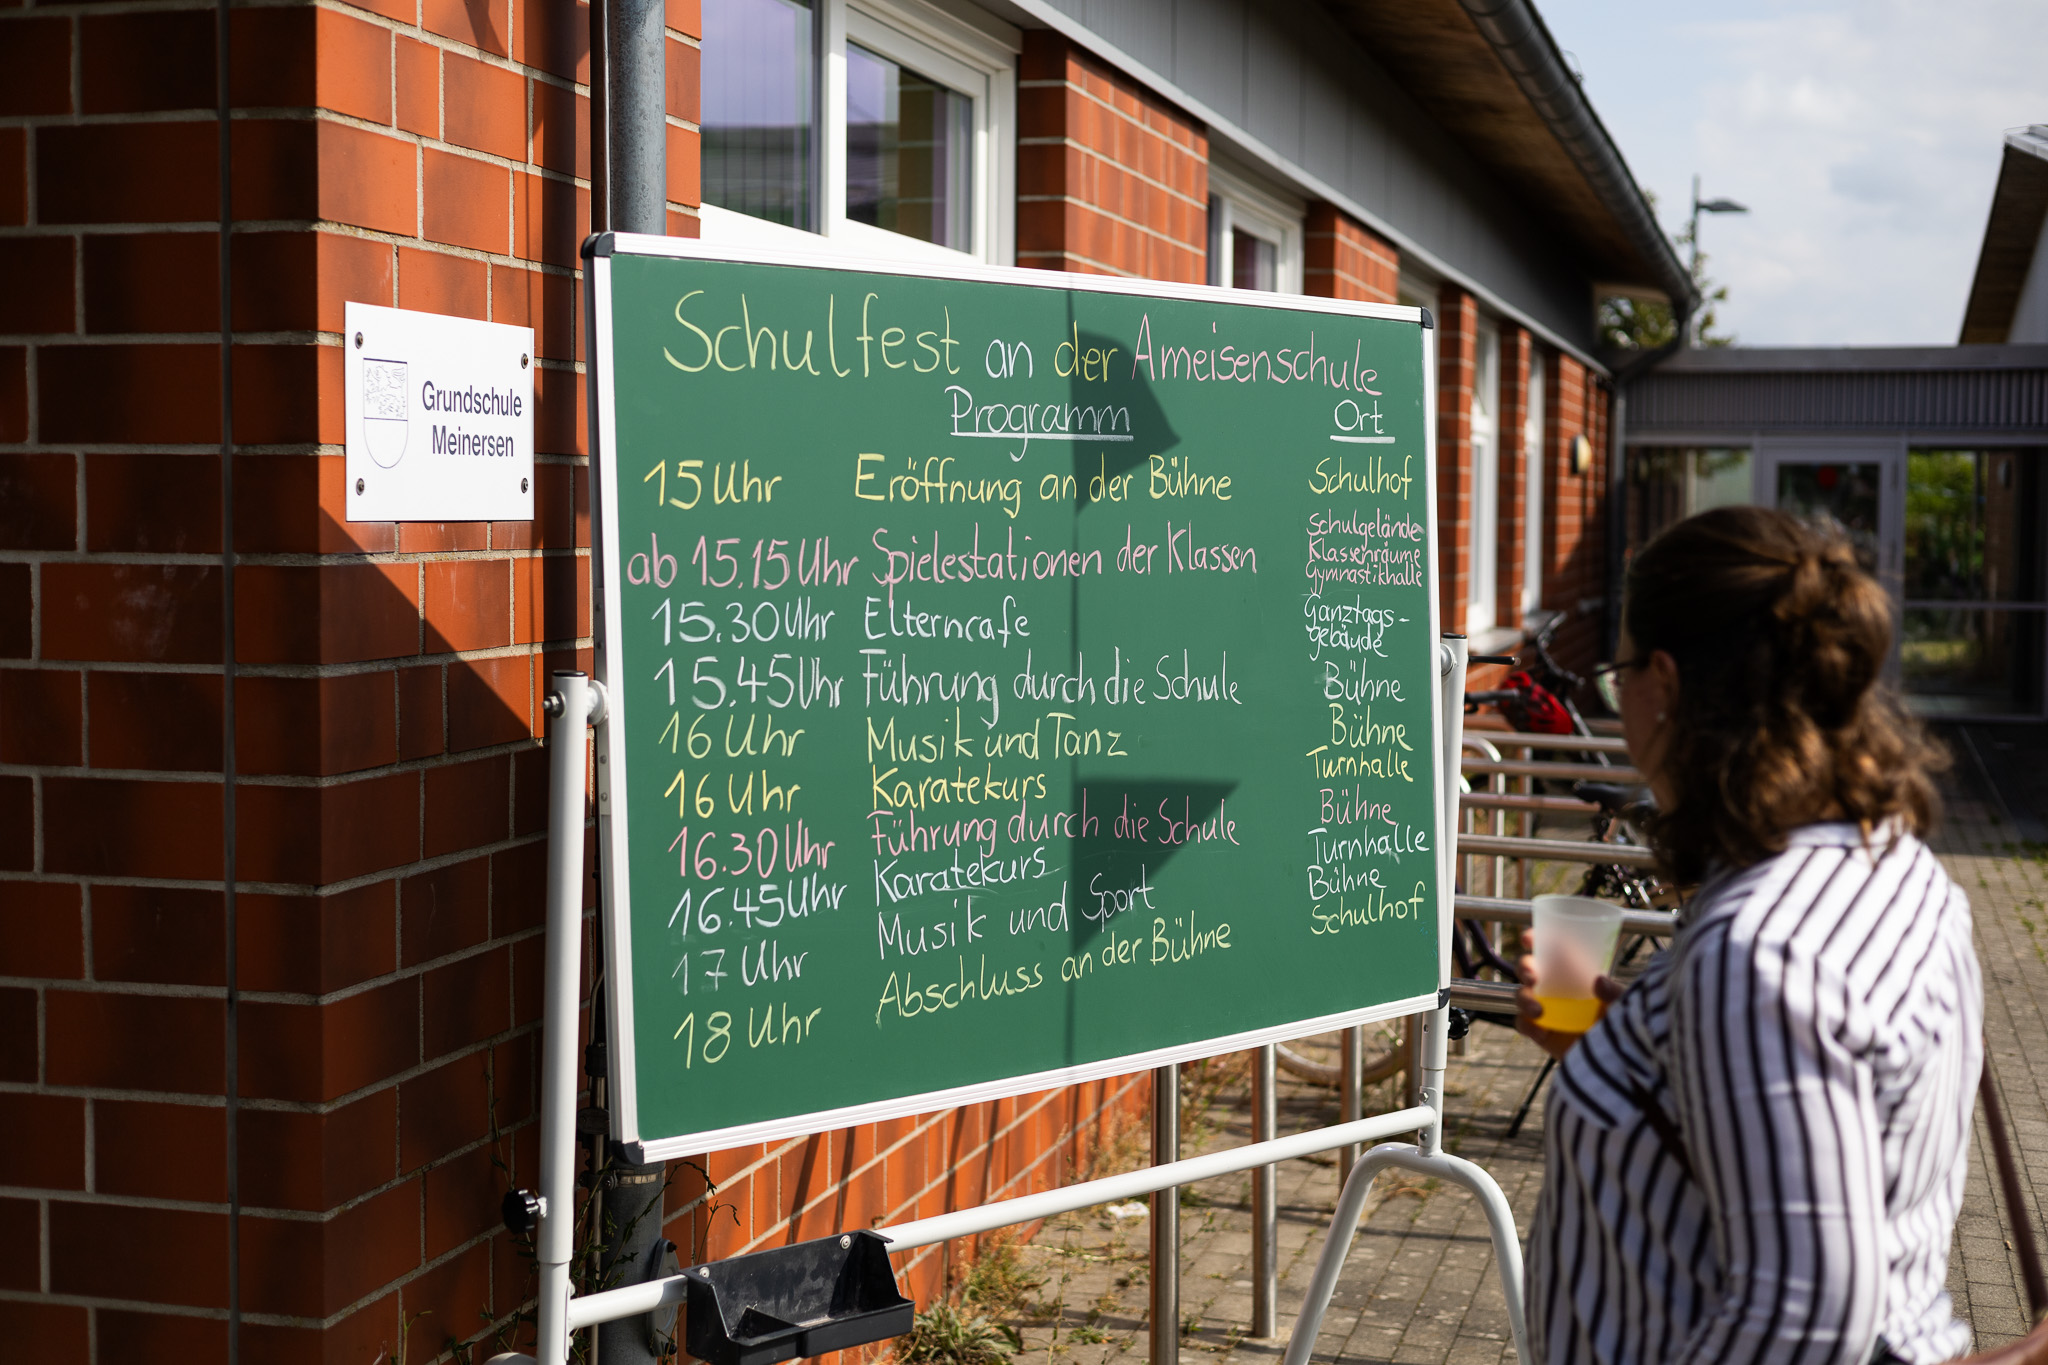 Grundschule
Meinersen
Schulfest an der Ameisenschule
Programm Ort
15 Uhr Eröffnung an der Bühne Schulhof
ab 15.15 Uhr Spielestationen der Klassen Schulgelände
Klassenräume
Gymnastikhalle
15.30 Uhr Elterncafe Ganztags-
gebäude
15.45 Uhr Führung durch die Schule Bühne
16 Uhr Musik und Tanz Bühne
16 Uhr Karatekurs Turnhalle
16.30 Uhr Führung durch die Schule Bühne
16.45 Uhr Karatekurs Turnhalle
17 Uhr Musik und Sport Bühne
18 Uhr Abschluss an der Bühne Schulhof